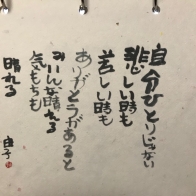 自分ひとりじゃない
悲しい時も
苦しい時も
ありがとうがあると
みいんな晴れる
気もちも
晴れる